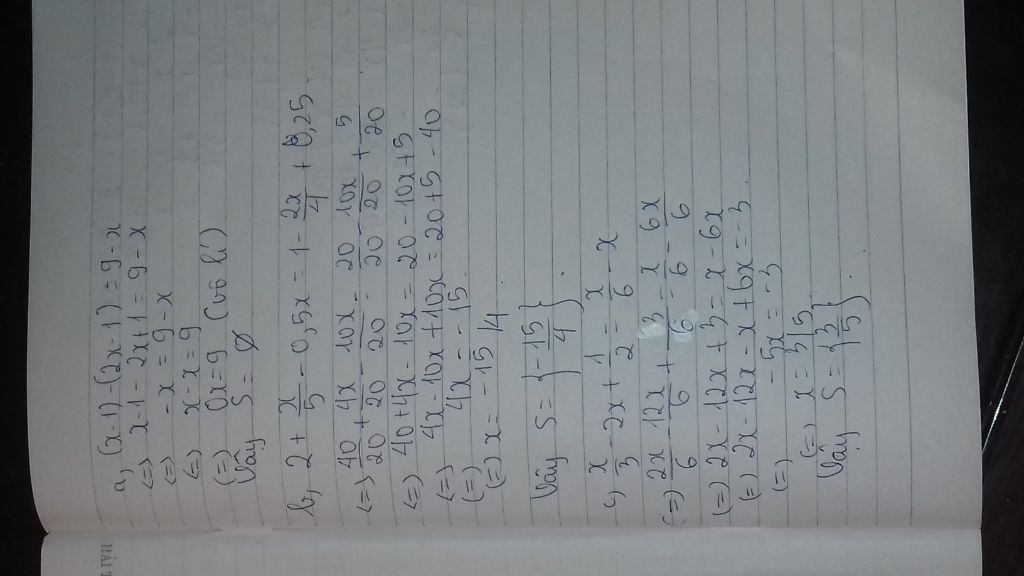 a, (x-1)-(2x-1) = 9-x
<=> x-1-2x+1 = 9-x
<=> -x = 9-x
<=> x-x = 9
<=> 0x = 9 (vô lí)
Vậy S = ∅
b, 2 + x/5 - 0,5x = 1 - 2x/4 + 0,25
<=> 40/20 + 4x/20 - 10x/20 = 20/20 - 10x/20 + 5/20
<=> 40+4x-10x = 20-10x+5
<=> 4x-10x+10x = 20+5-40
<=> 4x = -15
<=> x = -15/4
Vậy S = {-15/4}
c, x/3 - 2x + 1/2 = x/6 - x
<=> 2x/6 - 12x/6 + 3/6 = x/6 - 6x/6
<=> 2x-12x+3 = x-6x
<=> 2x-12x-x+6x = -3
<=> -5x = -3
<=> x = 3/5
Vậy S = {3/5}
HẢI